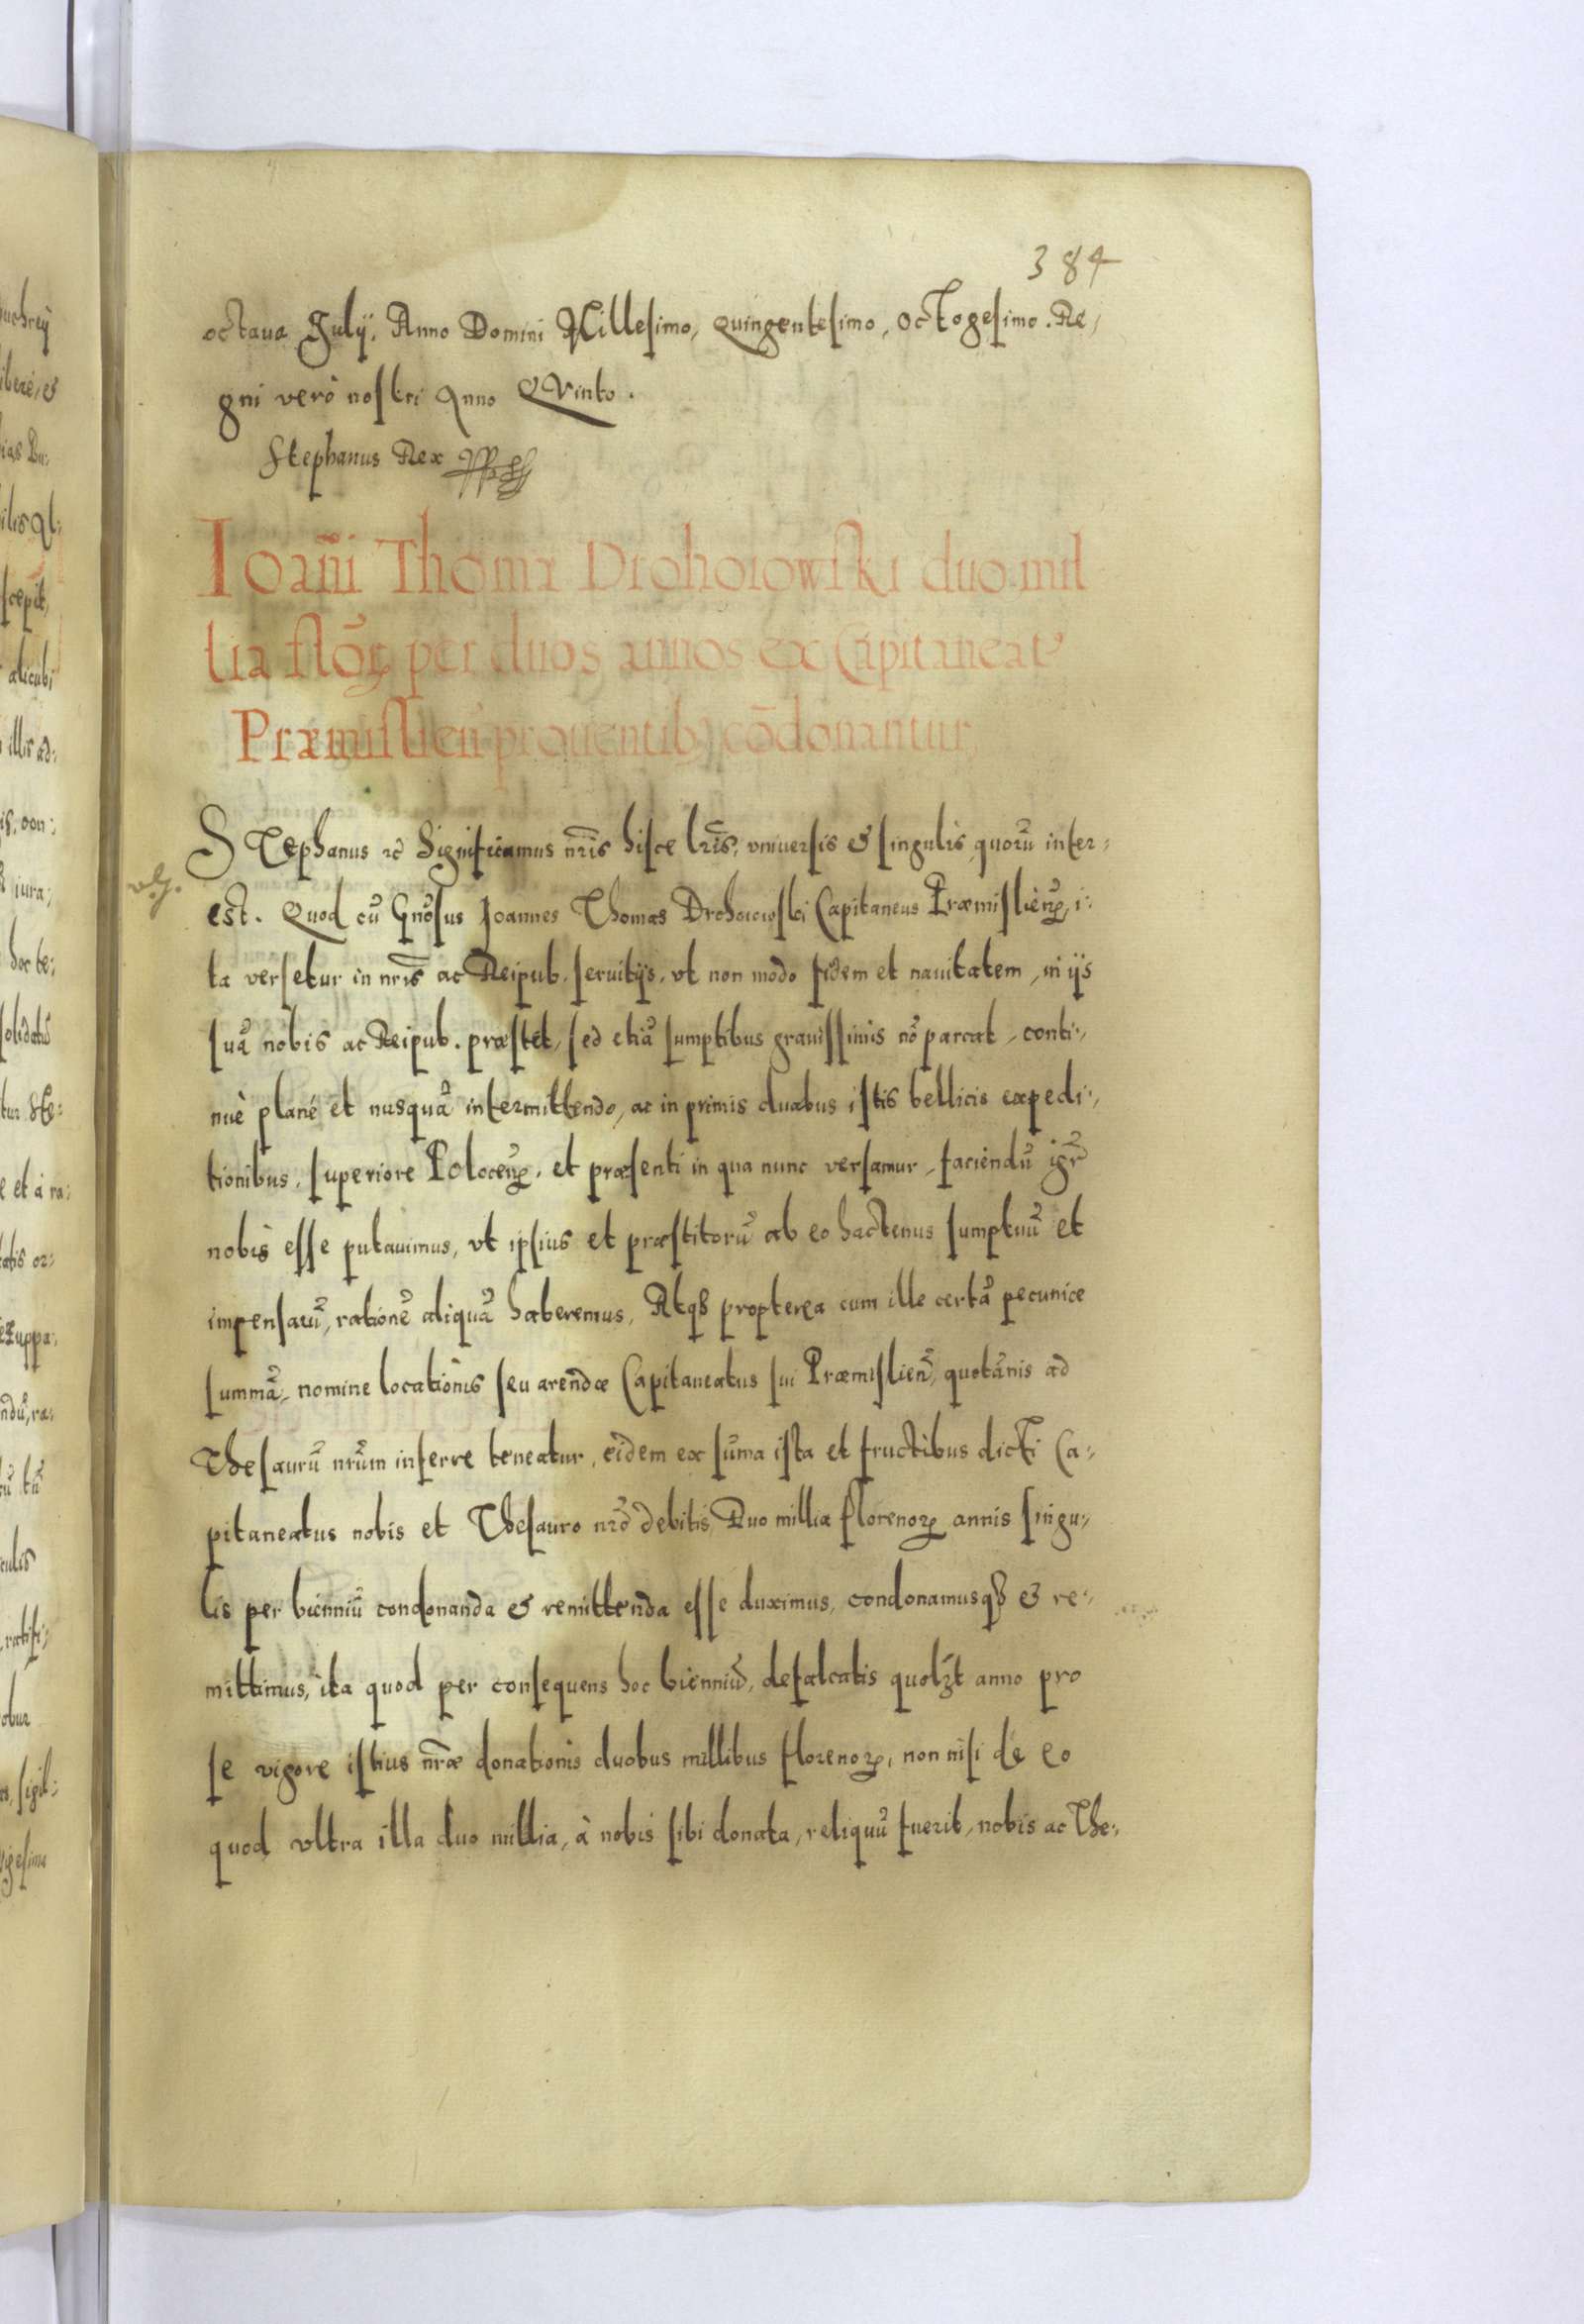 384
octaua Julij. Anno Domini Millesimo, Quingentesimo, Octogesimo. Re,
gni verò nostri Anno Qvinto.
Stephanus Rex
Ioañi Thomæ Drohoiowski duo mil
lia floꝝ per duos annos ex Capitaneatᵍ
Præmislieñ prouentibꝫ cōdonantur,
STephanus ꝛc Significamus nr̃is hisce lr̃is, vniuersis & singulis quorũ inter:
est. Quod cũ Gnõsus Joannes Thomas Drohoiowski Capitaneus Præmislièñ, i:
ta versetur in nr̃is ac Reipub. seruitijs, vt non modo fidem et nauitatem, in ijs
suã nobis ac Reipub. præstet, sed etiã sumptibus grauissimis nõ parcat, conti:,
nuè planè et nusquã intermittendo, ac in primis duabus istis bellicis expedi:,
tionibus, superiore Poloceñ, et præsenti in qua nunc versamur, faciendũ igr̃
nobis esse putauimus, vt ipsius et præstitorũ ab eo hactenus sumptuũ et
impensarũ, rationẽ aliquã haberemus, Atqꝫ propterea cum ille certã pecuniæ
summã, nomine locationis seu arendæ Capitaneatus sui Præmislieñ, quotãnis ad
Thesaurũ nr̃um inferre teneatur, eidem ex sũma ista et fructibus dicti Ca:,
pitaneatus nobis et Thesauro nr̃o debitis, Duo millia florenoꝝ annis singu:,
lis per bienniũ condonanda & remittenda esse duximus, condonamusqꝫ & re:,
mittimus, ita quod per consequens hoc bienniũ, defalcatis quolꝫt anno pro
se vigore istius nr̃æ donationis duobus millibus florenoꝝ, non nisi de eo
quod vltra illa duo millia, à nobis sibi donata, reliquũ fuerit, nobis ac The:,